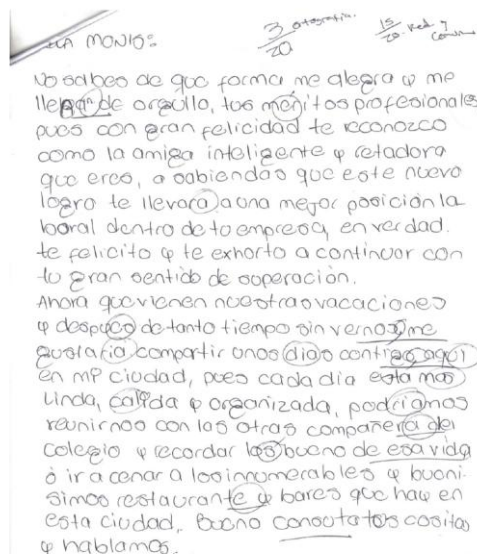 3/20 ortografía. 15/20 Red. y
MONIS:
No sabes de que forma me alegra y me
llegan de orgullo, tus meritos profesionales
pues con gran felicidad te reconozco
como la amiga inteligente y retadora
que eres, a sabiendas que este nuevo
logro te llevara a una mejor posición la
boral dentro de tu empresa, en verdad.
te felicito y te exhorto a continuar con
tu gran sentido de superación.
Ahora que vienen nuestras vacaciones
y despues de tanto tiempo sin vernos, me
gustaria compartir unos dias contigo aqui
en mi ciudad, pues cada dia esta mas
linda, calida y organizada, podriamos
reunirnos con las otras compañera del
colegio y recordar los bueno de esa vida
ó ir a cenar a los innumerables y bueni-
simos restaurante y bares que hay en
esta ciudad. Bueno tus cositas
y hablamos.